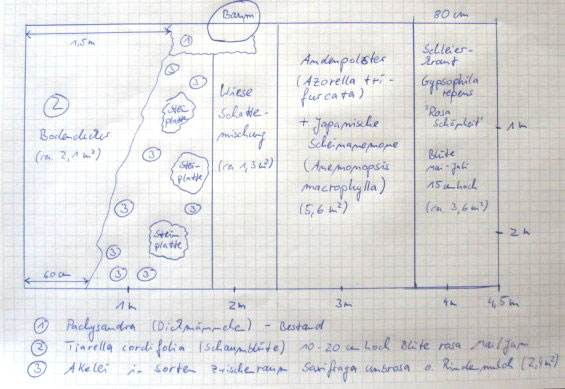 Baum
80 cm
1,5m
①
Schleier-
kraut
Gypsophila
repens
'Rosa
Schönheit'
Blüte
Mai-Juli
15 cm hoch
(ca 3,6 m²)
Andenpolster
(Azorella tri-
furcata)
+ Japanische
Scheinanemone
(Anemonopsis
macrophylla)
(5,6 m²)
Wiese
Schatten
mischung
(ca 1,3 m²)
②
Bodendecker
(ca 2,1 m²)
Stein
platte
Stein-
platte
Stein
platte
③
③
③
③
③
③
③
③
1m
2m
60 cm
1m
2m
3m
4m
4,5m
① Pachysandra (Dickmännchen) - Bestand
② Tiarella cordifolia (Schaumblüte) 10-20 cm hoch Blüte rosa Mai/Juni
③ Akelei in Sorten Zwischenraum Saxifraga umbrosa o. Rindenmulch (2,4 m²)